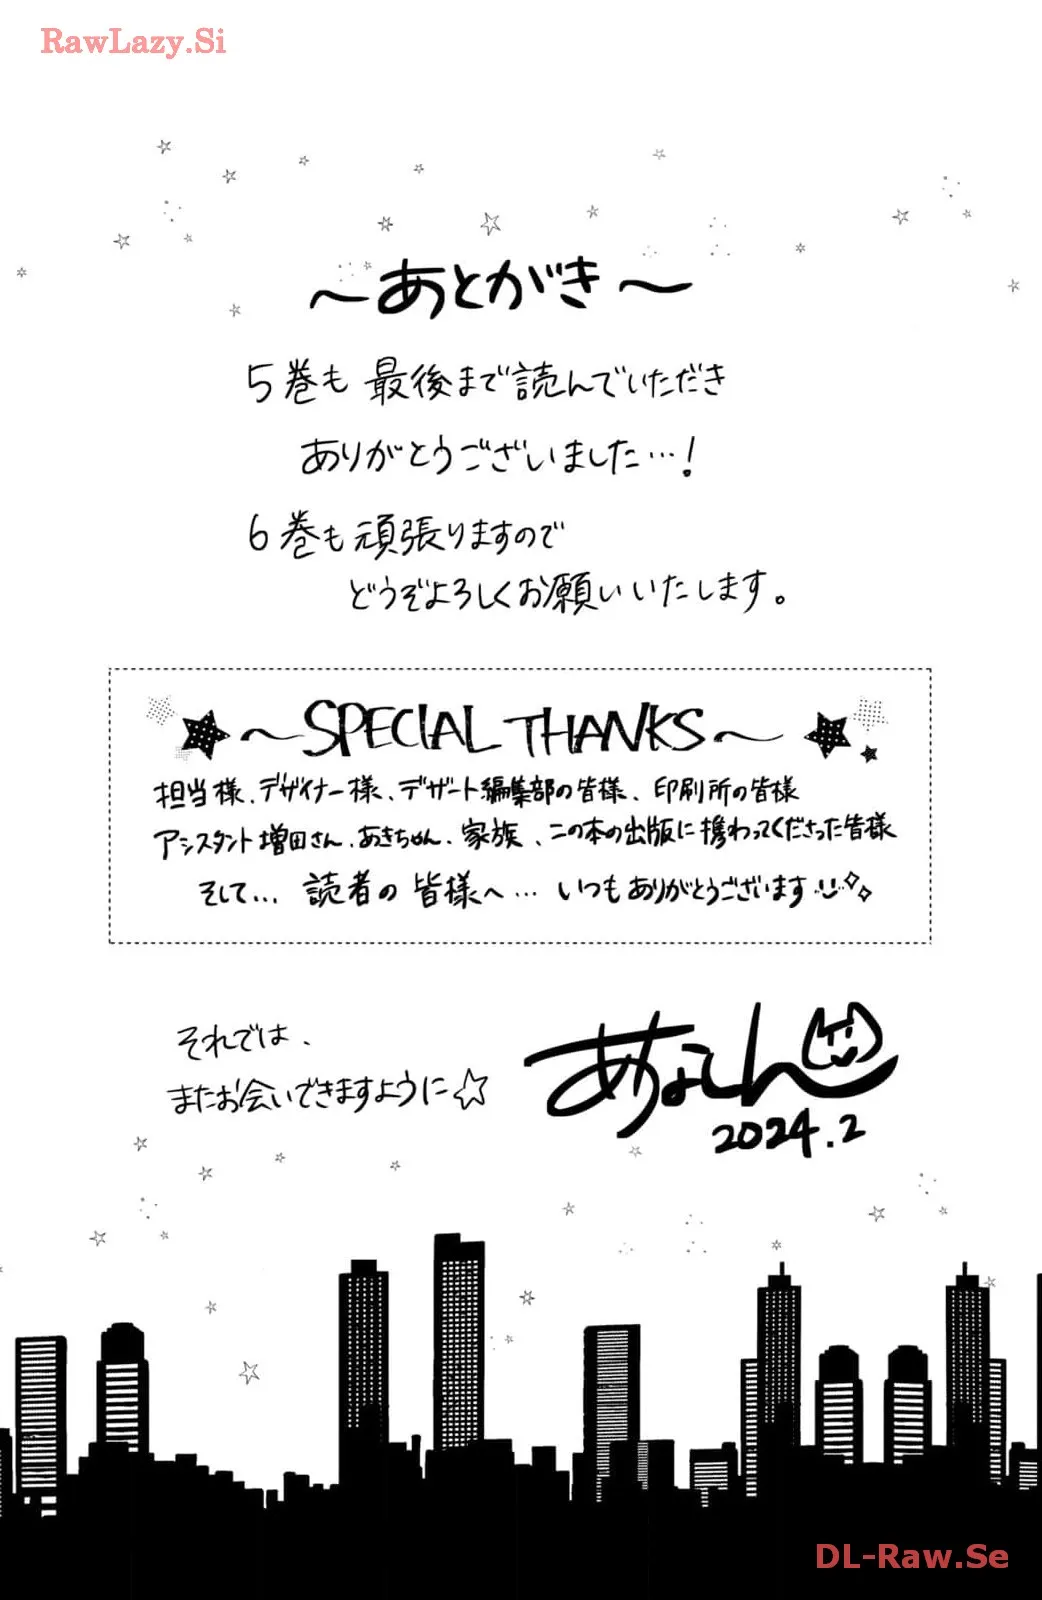 RawLazy.Si
～あとがき～
5巻も 最後まで読んでいただき
ありがとうございました…！
6巻も頑張りますので
どうぞよろしくお願いいたします。
～SPECIAL THANKS～
担当様、デザイナー様、デザート編集部の皆様、印刷所の皆様
アシスタント増田さん、あきちゃん、家族、この本の出版に携わってくださった皆様
そして… 読者の皆様へ… いつもありがとうございます
それでは、
またお会いできますように☆
2024.2
DL-Raw.Se